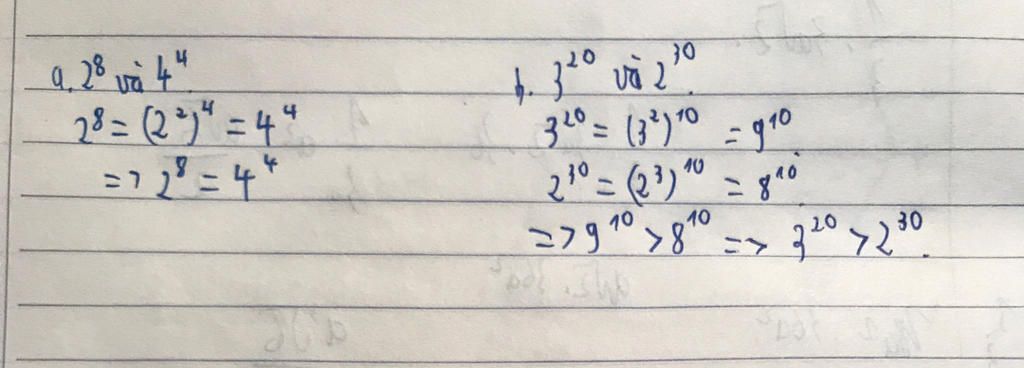 a. 2⁸ và 4⁴
2⁸ = (2²)⁴ = 4⁴
=> 2⁸ = 4⁴
b. 3²⁰ và 2³⁰.
3²⁰ = (3²)¹⁰ = 9¹⁰.
2³⁰ = (2³)¹⁰ = 8¹⁰.
=> 9¹⁰ > 8¹⁰ => 3²⁰ > 2³⁰.